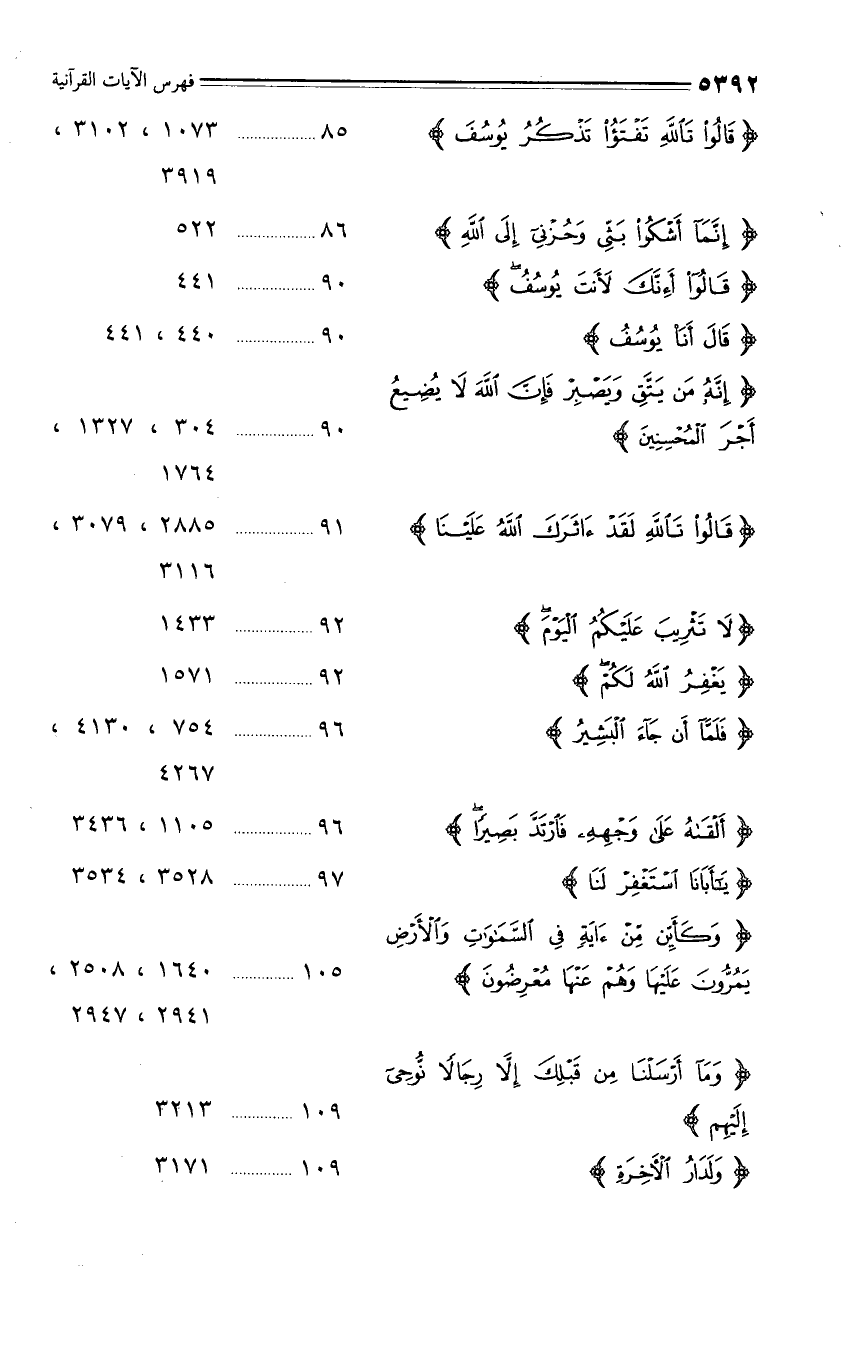 ٥٣٩٢ فهرس الآيات القرآنية
﴿ قَالُوا۟ تَٱللَّهِ تَفْتَؤُا۟ تَذْكُرُ يُوسُفَ ﴾ ٨٥ ................... ١٠٧٣ ، ٣١٠٢ ،
٣٩١٩
﴿ إِنَّمَآ أَشْكُوا۟ بَثِّى وَحُزْنِىٓ إِلَى ٱللَّهِ ﴾ ٨٦ ................... ٥٢٢
﴿ قَالُوٓا۟ أَءِنَّكَ لَأَنتَ يُوسُفُ ۖ ﴾ ٩٠ ................... ٤٤١
﴿ قَالَ أَنَا۠ يُوسُفُ ﴾ ٩٠ ................... ٤٤٠ ، ٤٤١
﴿ إِنَّهُۥ مَن يَتَّقِ وَيَصْبِرْ فَإِنَّ ٱللَّهَ لَا يُضِيعُ
أَجْرَ ٱلْمُحْسِنِينَ ﴾ ٩٠ ................... ٣٠٤ ، ١٣٢٧ ،
١٧٦٤
﴿ قَالُوا۟ تَٱللَّهِ لَقَدْ ءَاثَرَكَ ٱللَّهُ عَلَيْنَا ﴾ ٩١ ................... ٢٨٨٥ ، ٣٠٧٩ ،
٣١١٦
﴿ لَا تَثْرِيبَ عَلَيْكُمُ ٱلْيَوْمَ ۖ ﴾ ٩٢ ................... ١٤٣٣
﴿ يَغْفِرُ ٱللَّهُ لَكُمْ ۖ ﴾ ٩٢ ................... ١٥٧١
﴿ فَلَمَّآ أَن جَآءَ ٱلْبَشِيرُ ﴾ ٩٦ ................... ٧٥٤ ، ٤١٣٠ ،
٤٢٦٧
﴿ أَلْقَىٰهُ عَلَىٰ وَجْهِهِۦ فَٱرْتَدَّ بَصِيرًا ۖ ﴾ ٩٦ ................... ١١٠٥ ، ٣٤٣٦
﴿ يَـٰٓأَبَانَا ٱسْتَغْفِرْ لَنَا ﴾ ٩٧ ................... ٣٥٢٨ ، ٣٥٣٤
﴿ وَكَأَيِّن مِّنْ ءَايَةٍ فِى ٱلسَّمَـٰوَٰتِ وَٱلْأَرْضِ
يَمُرُّونَ عَلَيْهَا وَهُمْ عَنْهَا مُعْرِضُونَ ﴾ ١٠٥ ............... ١٦٤٠ ، ٢٥٠٨ ،
٢٩٤١ ، ٢٩٤٧
﴿ وَمَآ أَرْسَلْنَا مِن قَبْلِكَ إِلَّا رِجَالًا نُّوحِىٓ
إِلَيْهِم ﴾ ١٠٩ ............... ٣٢١٣
﴿ وَلَدَارُ ٱلْأَخِرَةِ ﴾ ١٠٩ ............... ٣١٧١